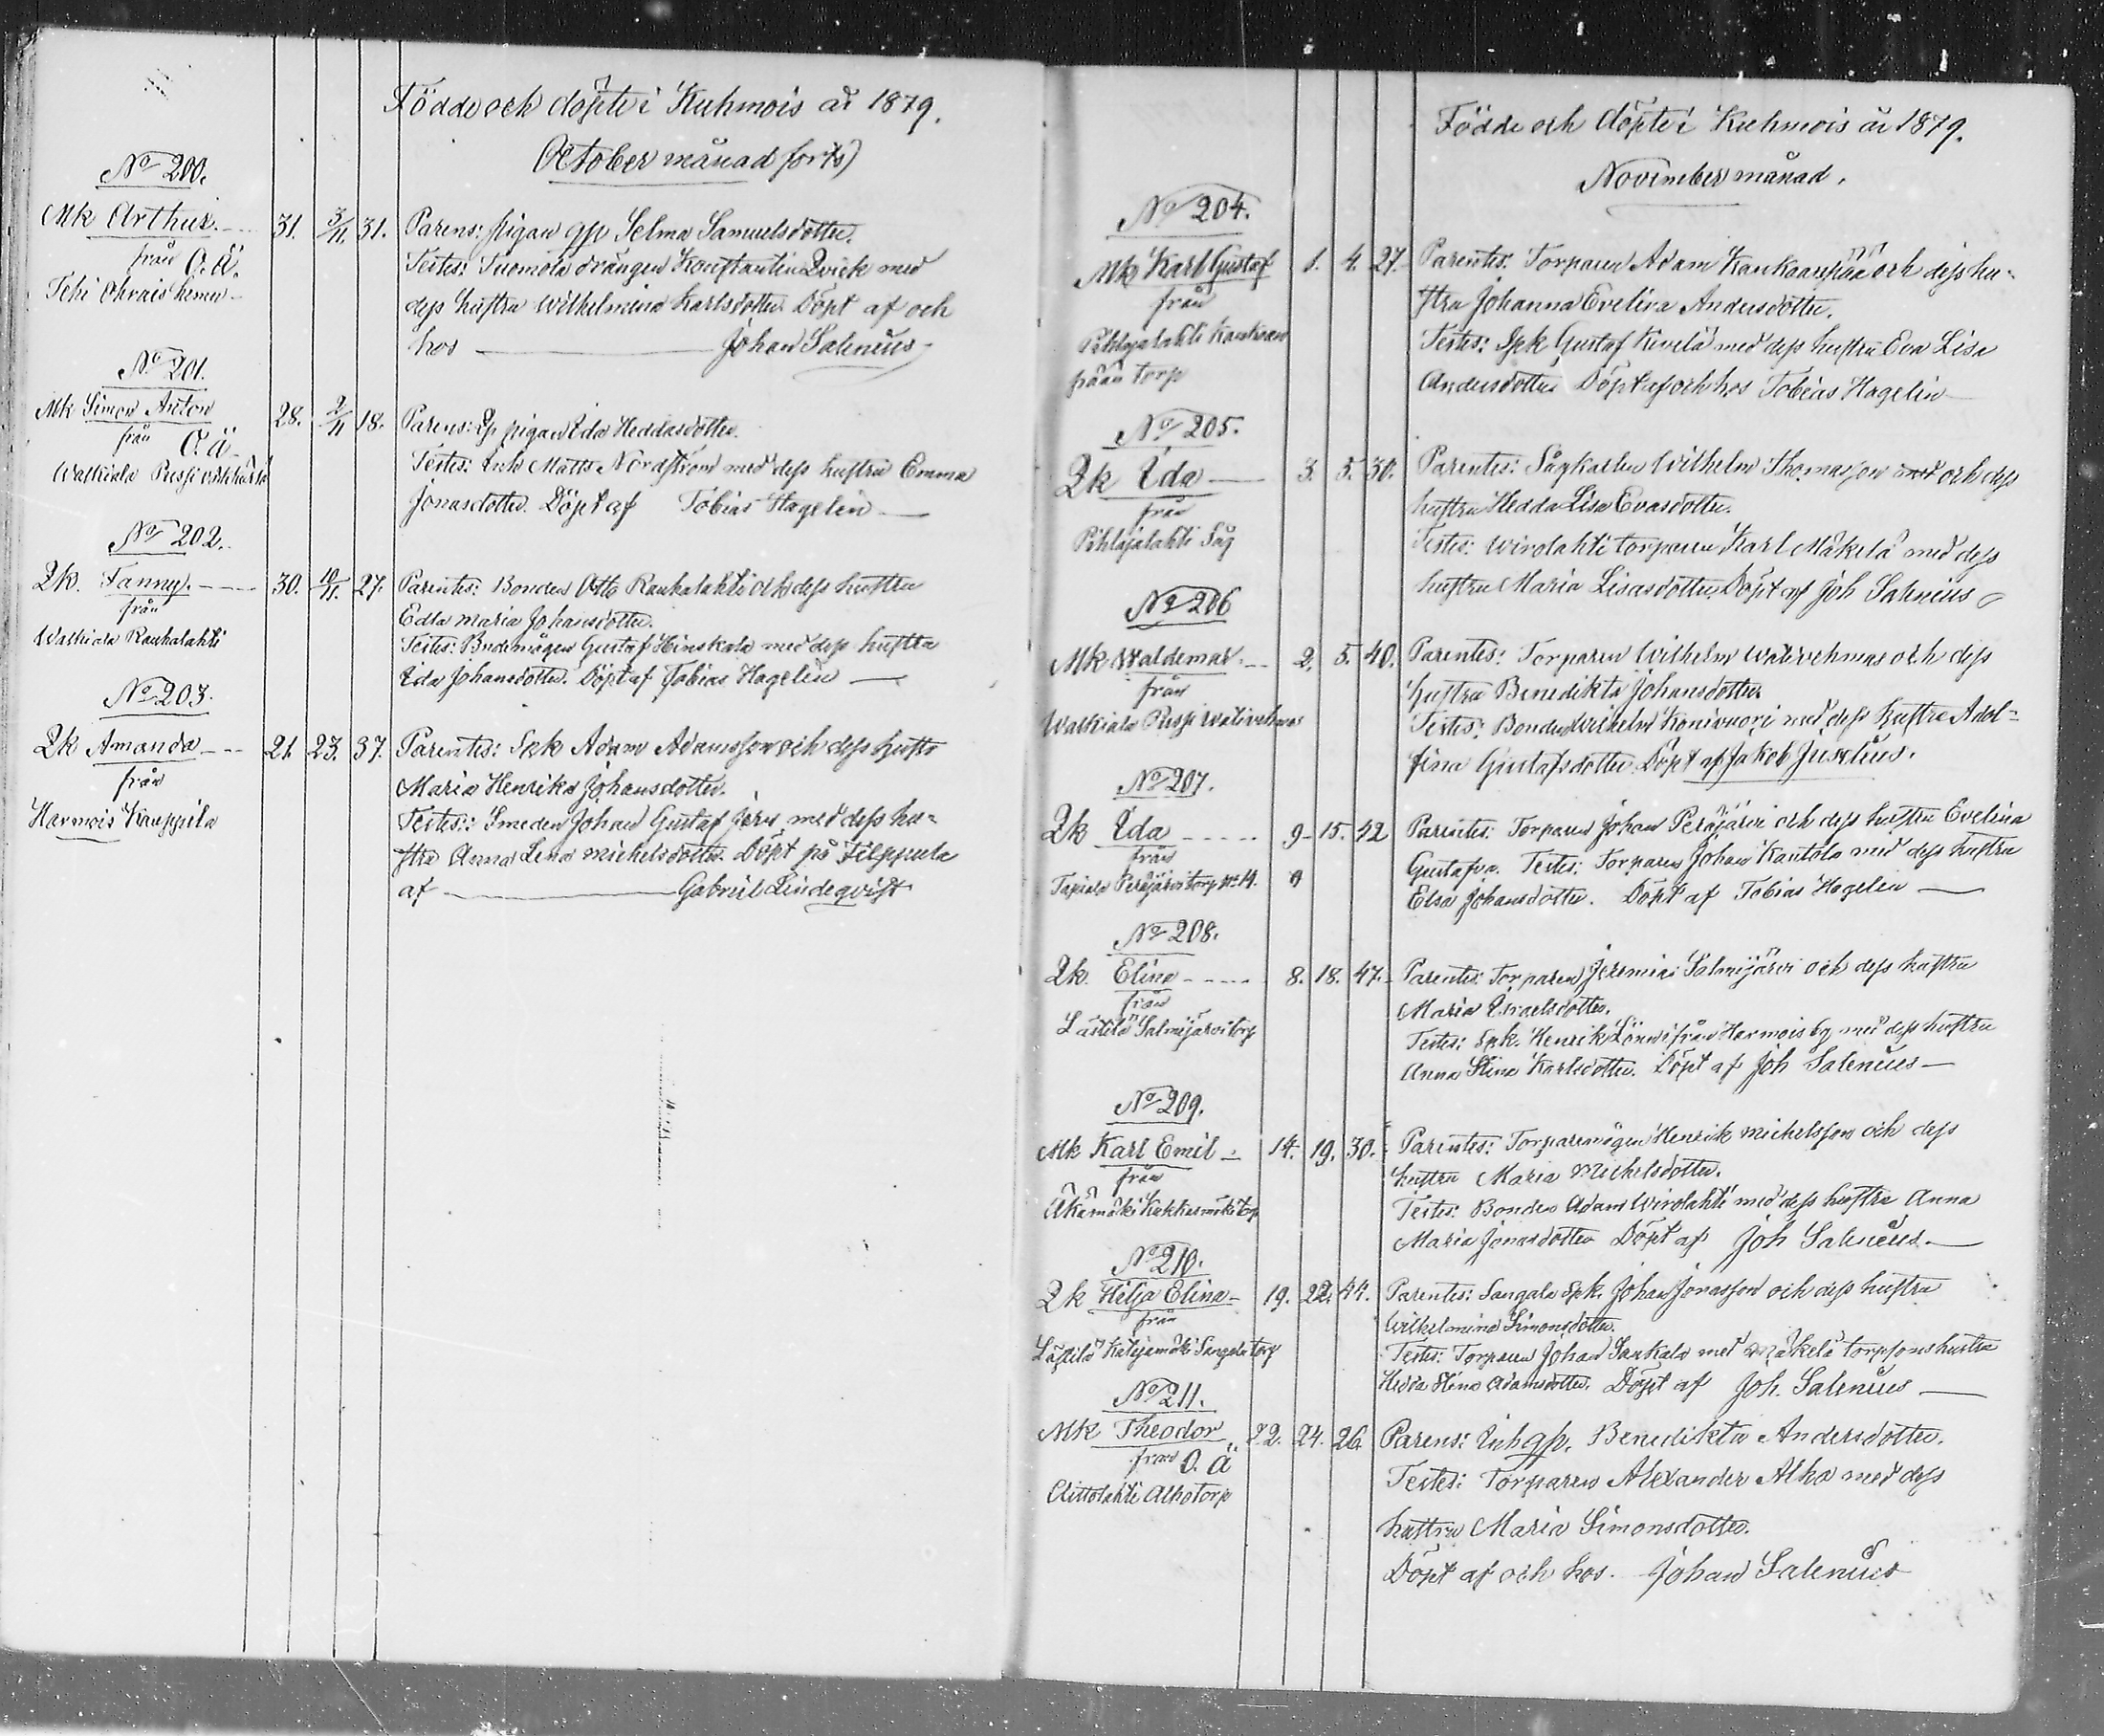 Födde och döpte i Kuhmois år 1879.
October månad forts)
No 200.
Mk Arthur. 31. 3/11. 31. Parens: pigan gp Selma Samuelsdotter.
från O.ä. Testes: Tuomola drängen Konstantin Qvick med
Tehi Ohrais hemn dess hustru Wilhelmina Karlsdotter. Döpt af och
hos Johan Salenius
No 201.
Mk Simon Anton 28. 2/11 18. Parens: gp pigan Ida Heddasdotter.
från O.ä. Testes: Inh Matts Nordström med dess hustru Emma
Walkiala Pussi Jonasdotter. Döpt af Tobias Hagelin
No 202.
Qk. Fanny. 30. 10/11. 27. Parentes: Bonden Otto Rauhalahti och dess hustru
från Edla Maria Johansdotter.
Walkiala Rauhalahti Testes: Bndemågen Gustaf Hinskala med dess hustru
Ida Johansdotter. Döpt af Tobias Hagelin
No 203.
Qk Amanda 21. 23. 37. Parentes: Spk Adam Adamsson och dess hustr
från Maria Henrika Johansdotter.
Harmois Kauppila Testes: Smeden Johan Gustaf Jern med dess hu-
stru Anna Lena Michelsdotter. Döpt på Filppula
af Gabriel Lindeqvist
Födde och döpte i Kuhmois år 1879.
November månad.
No 204.
Mk Karl Gustaf 1. 4. 27. Parentes: Torparen Adam Kankaanpää och dess hu-
från stru Johanna Evelina Andersdotter.
Pihlajalahti Kankaan Testes: Spk Gustaf Kivelä med dess hustru Eva Lisa
pään torp Andersdotter Döpt af och hos Tobias Hagelin
No 205.
Qk Ida 3. 5. 30. Parentes: Sågkarlen Wilhelm Thomasson och dess
från hustru Hedda Lisa Evasdotter.
Pihlajalahti Såg Testes: Wirolahti torparen Karl Mäkelä med dess
hustru Maria Lisasdotter. Döpt af Joh Salenius
No 206
Mk Waldemar. 2. 5. 40. Parentes: Torparen Wilhelm Wativehmas och dess
från hustru Benedikta Johansdotter.
Walkiala Pussi Wativehmas Testes: Bonden Wilhelm Konivuori med dess hustru Adol-
fina Gustafsdotter Döpt af Jakob Juselius.
No 207.
Qk Ida 9. 15. 42 Parentes: Torparen Johan Peräjärvi och dess hustru Evelina
från Gustafva. Testes: Torparen Johan Kautola med dess hustru
Tapiala Peräjärvi torp Elsa Johansdotter. Döpt af Tobias Hagelin
No 208.
Qk. Elina 8. 18. 47. Parentes: Torparen Jeremias Salmijärvi och dess hustru
från Maria Israelsdotter.
Lästilä Salmijärvi torp Testes: Spk. Henrik Lönn ifrån Harmois by med dess hustru
Anna Stina Karlsdotter. Döpt af Joh Salenius
No 209.
Mk Karl Emil 14. 19. 30. Parentes: Torparemågen Henrik Michelsson och dess
från hustru Maria Michelsdotter.
Äkämäki torp Testes: Bonden Adam Wirolahti med dess hustru Anna
Maria Jonasdotter Döpt af Joh Salenius
No 210.
Qk Hilja Elina 19. 22. 44. Parentes: Sangala Spk. Johan Jonasson och dess hustru
från Wilhelmina Simonsdotter.
Lästilä Katajamäki Sangala torp Testes: Torparen Johan Saukala med Mäkelä torpsonshustru
Hedda Stina Adamsdotter. Döpt af Joh. Salenius
No 211.
Mk Theodor 22. 24. 26. Parens: Inh gp. Benedikta Andersdotter.
från O. ä Testes: Torparen Alexander Alho med dess
Aittolahti Alho torp hustru Maria Simonsdotter.
Döpt af och hos. Johan Salenius